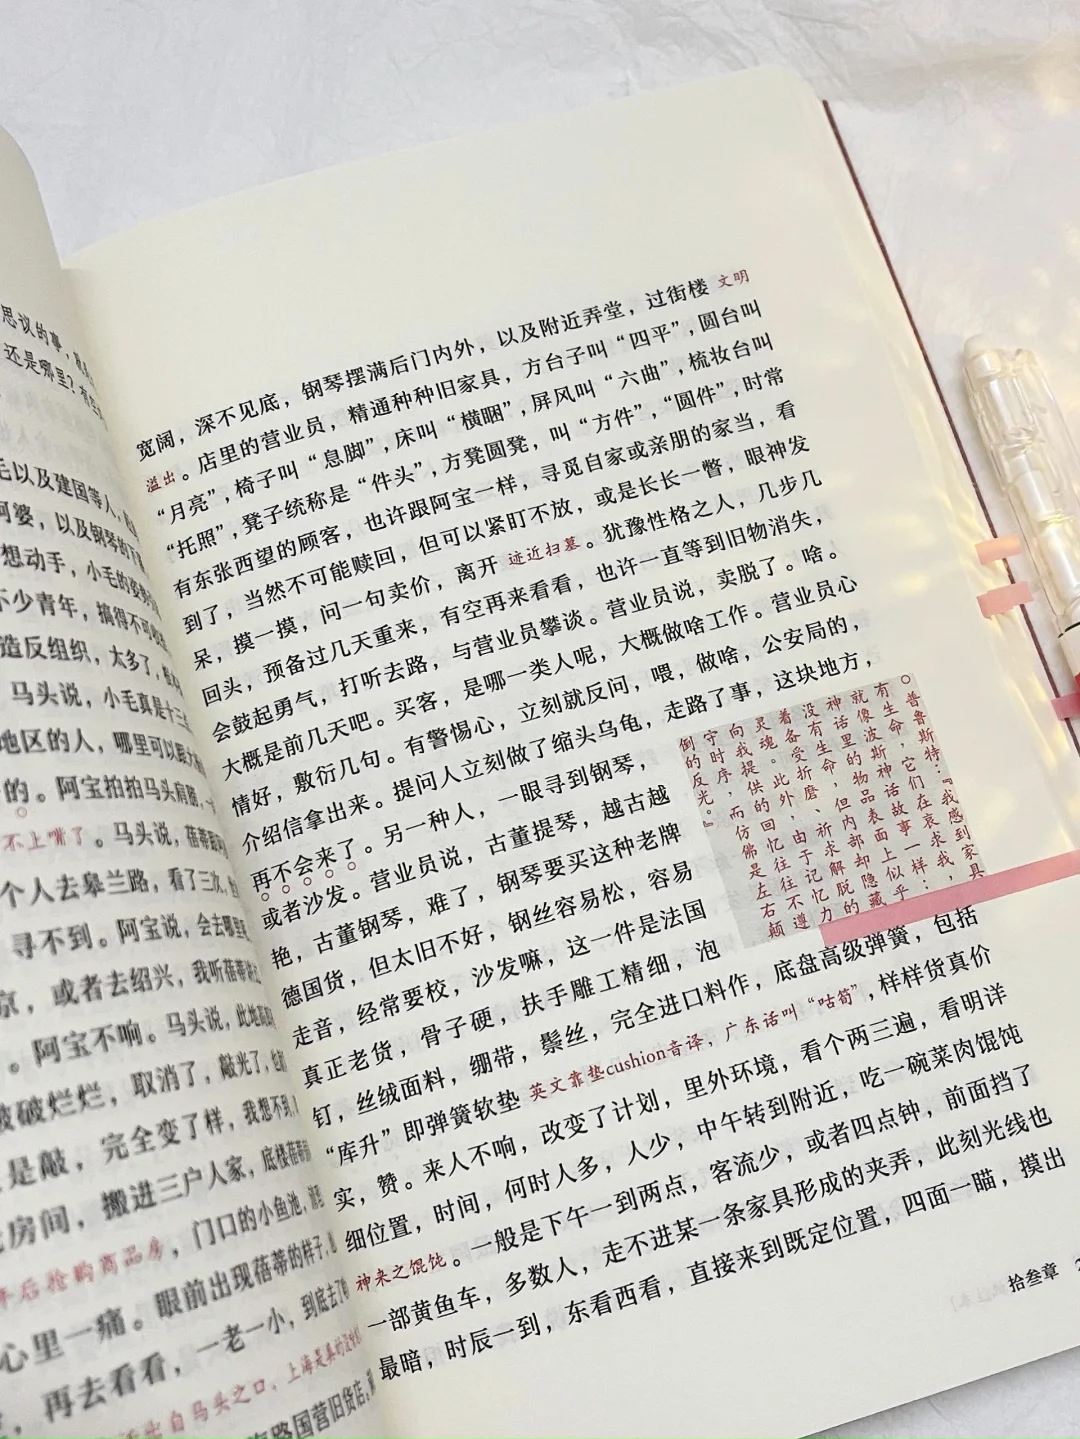 思议的事，
还是哪里？
毛以及建国等人，
阿婆，以及钢琴的下落
想动手，小毛的姿势
不少青年，搞得不可
造反组织，太多了，
马头说，小毛真是十三
地区的人，哪里可以
的。阿宝拍拍马头肩膀，一
不上嘴了。马头说，蓓蒂
个人去皋兰路，看了三次，
寻不到。阿宝说，会去哪里
京，或者去绍兴，我听蓓蒂讲过
。阿宝不响。马头说，此地
破破烂烂，取消了，敲光了，也
是敲，完全变了样，我想不到，
房间，搬进三户人家，底楼蓓蒂
年后抢购商品房，门口的小鱼池，
心里一痛。眼前出现蓓蒂的样子，
再去看看，一老一小，到底去了
出自马头之口，上海是真的
路国营旧货店，
宽阔，深不见底，钢琴摆满后门内外，以及附近弄堂，过街楼 文明
溢出。店里的营业员，精通种种旧家具，方台子叫“四平”，圆台叫
“月亮”，椅子叫“息脚”，床叫“横睏”，屏风叫“六曲”，梳妆台叫
“托照”，凳子统称是“件头”，方凳圆凳，叫“方件”，“圆件”，时常
有东张西望的顾客，也许跟阿宝一样，寻觅自家或亲朋的家当，看
到了，当然不可能赎回，但可以紧盯不放，或是长长一瞥，眼神发
呆，摸一摸，问一句卖价，离开 迹近扫墓。犹豫性格之人，几步几
回头，预备过几天重来，有空再来看看，也许一直等到旧物消失，
会鼓起勇气，打听去路，与营业员攀谈。营业员说，卖脱了。啥。
大概是前几天吧。买客，是哪一类人呢，大概做啥工作。营业员心
情好，敷衍几句。有警惕心，立刻就反问，喂，做啥，公安局的，
介绍信拿出来。提问人立刻做了缩头乌龟，走路了事，这块地方，
再不会来了。另一种人，一眼寻到钢琴，
或者沙发。营业员说，古董提琴，越古越
艳，古董钢琴，难了，钢琴要买这种老牌
德国货，但太旧不好，钢丝容易松，容易
走音，经常要校，沙发嘛，这一件是法国
真正老货，骨子硬，扶手雕工精细，泡
钉，丝绒面料，绷带，鬃丝，完全进口料作，底盘高级弹簧，包括
“库升”即弹簧软垫 英文靠垫cushion音译，广东话叫“咕笱”，样样货真价
实，赞。来人不响，改变了计划，里外环境，看个两三遍，看明详
细位置，时间，何时人多，人少，中午转到附近，吃一碗菜肉馄饨
神来之馄饨。一般是下午一到两点，客流少，或者四点钟，前面挡了
一部黄鱼车，多数人，走不进某一条家具形成的夹弄，此刻光线也
最暗，时辰一到，东看西看，直接来到既定位置，四面一瞄，摸出
普鲁斯特：“我感到家具
有生命，它们在哀求我，
就像波斯神话故事一样：
神话里的物品表面上似乎
没有生命，但内部却隐藏
着备受折磨、祈求解脱的
灵魂。此外，由于记忆力
向我提供的回忆往往不遵
守时序，而仿佛是左右颠
倒的反光。”
拾叁章